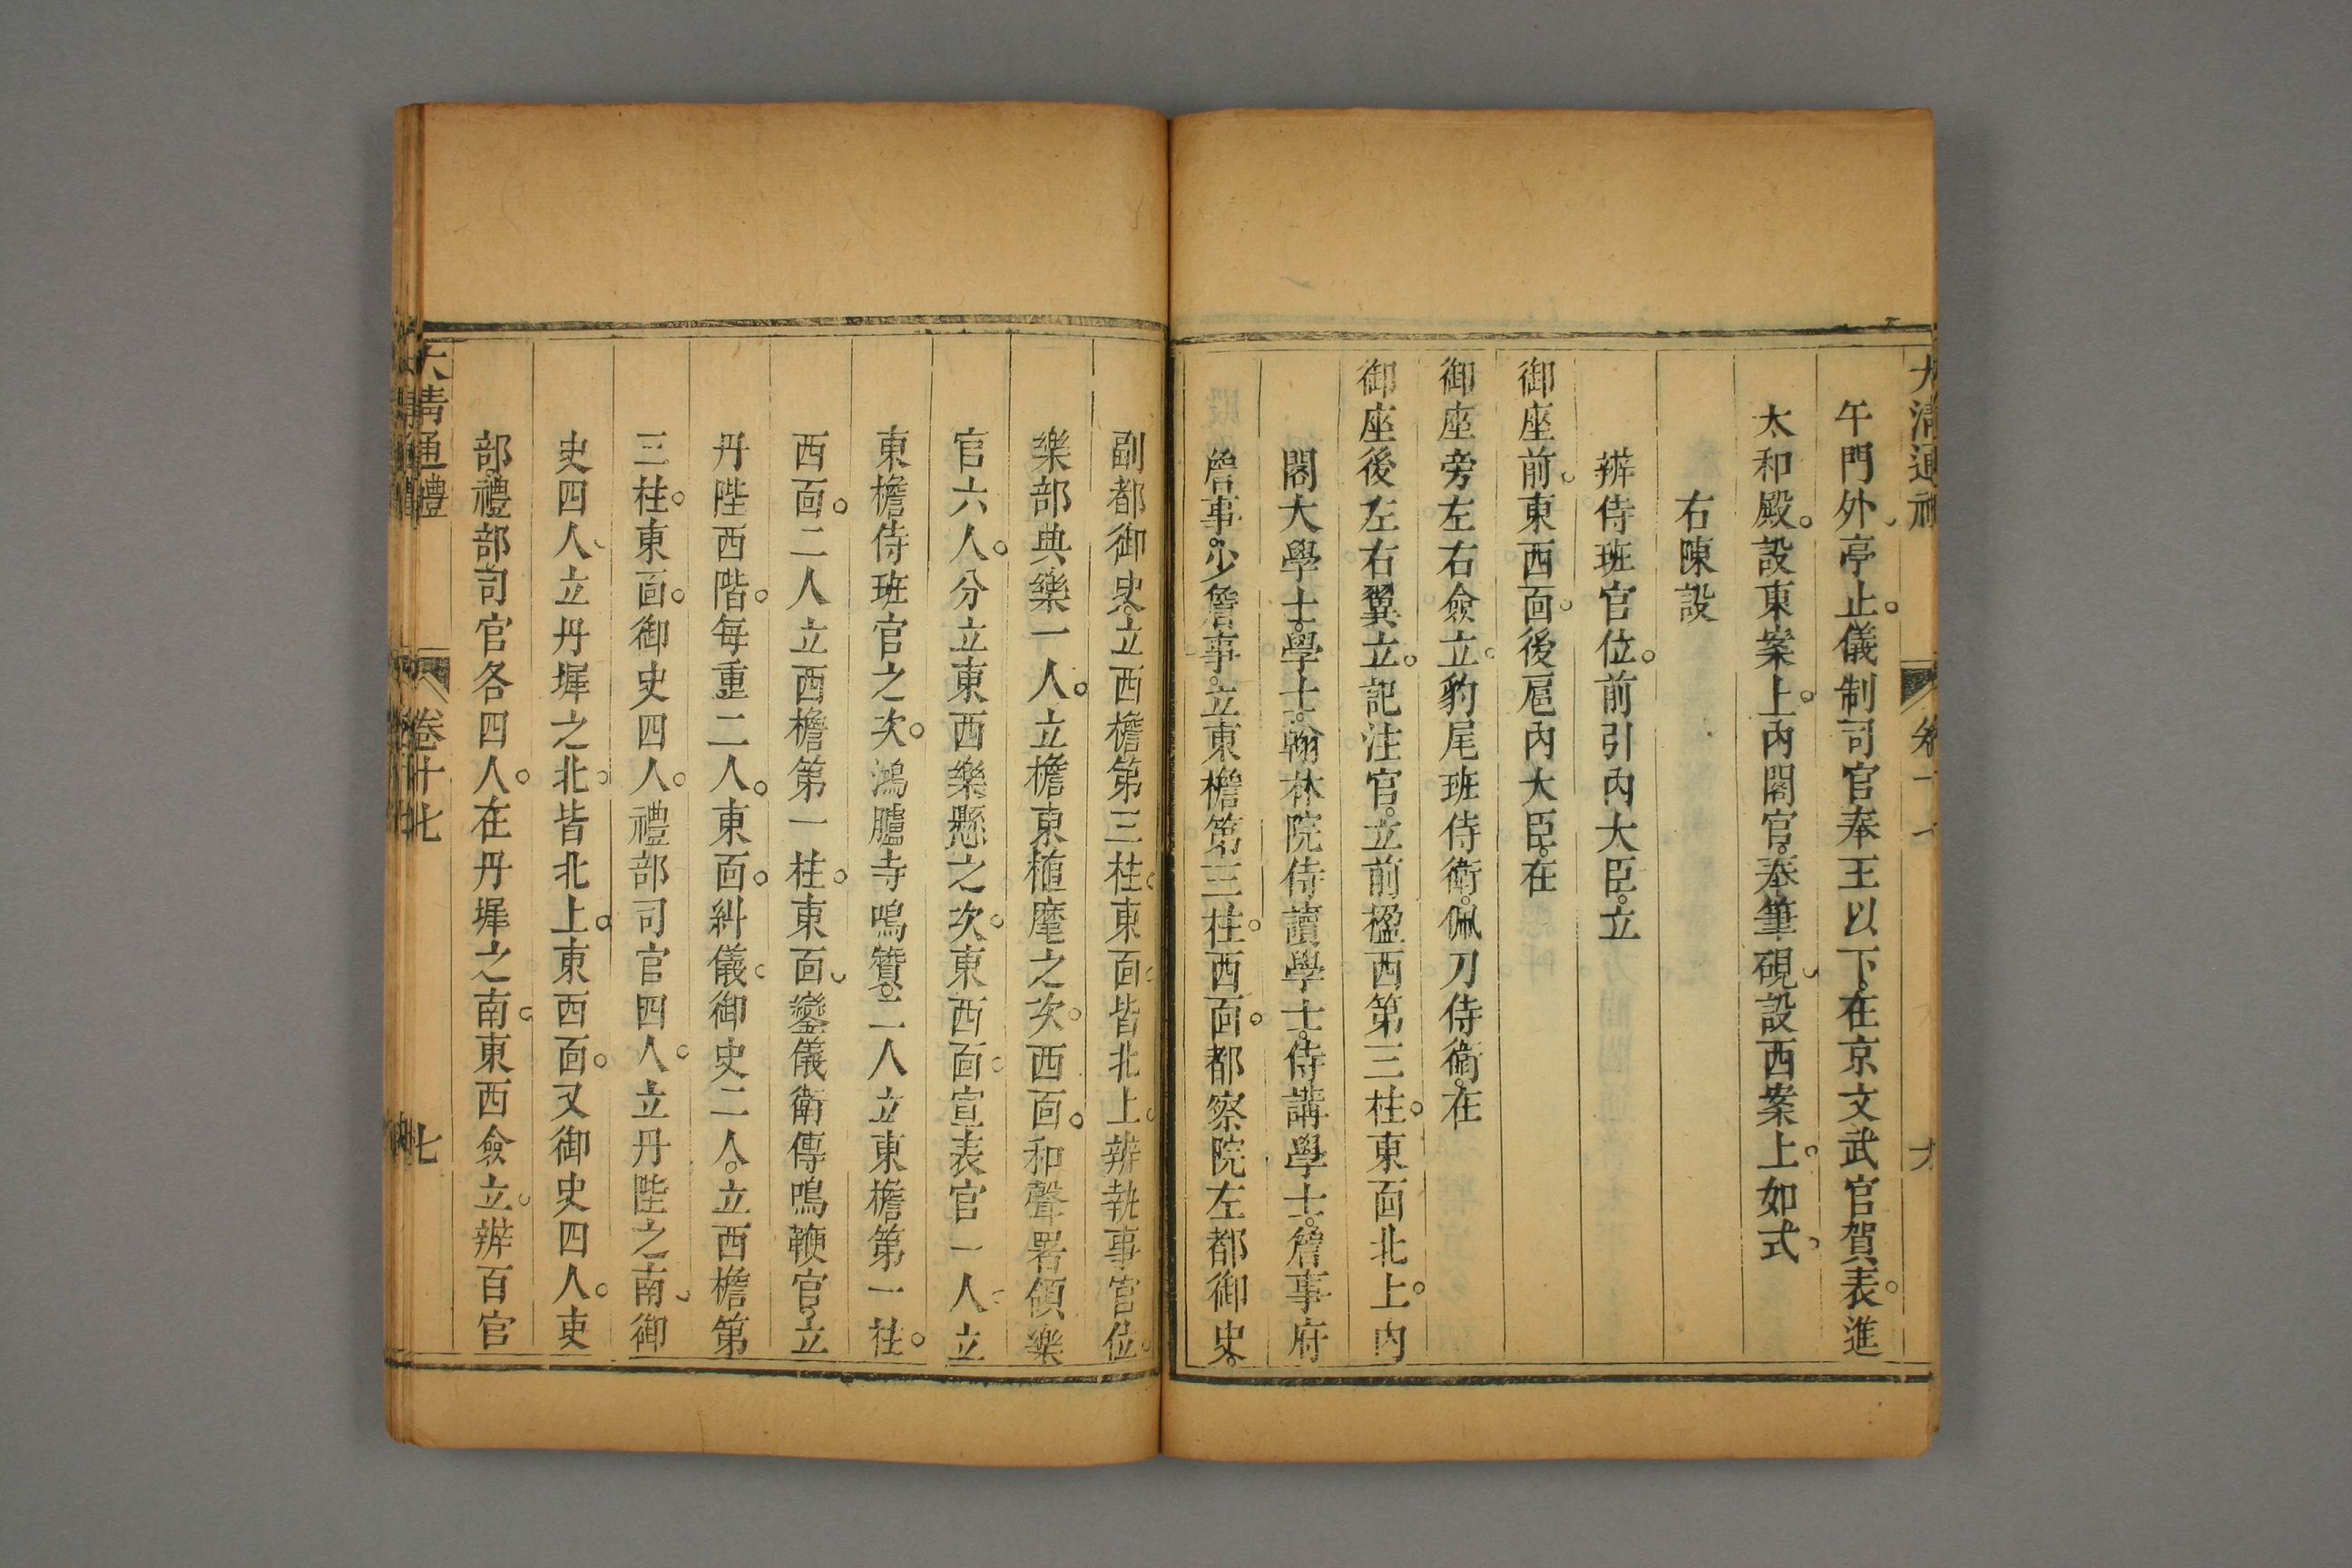 大清通禮 卷十七 六
午門外亭止。儀制司官奉王以下。在京文武官賀表。進
太和殿。設東案上。內閣官。奉筆硯。設西案上。如式。
右陳設
辨侍班官位。前引內大臣。立
御座前。東西面。後扈內大臣。在
御座旁左右僉立。豹尾班侍衛。佩刀侍衛。在
御座後左右翼立。記注官。立前楹西第三柱。東面北上。內
閣大學士。學士。翰林院侍讀學士。侍講學士。詹事府
詹事。少詹事。立東檐第三柱。西面。都察院左都御史。
副都御史。立西檐第三柱。東面。皆北上。辨執事官位。
樂部典樂一人。立檐東植麾之次。西面。和聲署領樂
官六人。分立東西樂懸之次。東西面。宣表官一人。立
東檐侍班官之次。鴻臚寺鳴贊。二人立東檐第一柱。
西面。二人立西檐第一柱。東面。鑾儀衛傳鳴鞭官。立
丹陛西階。每重二人。東面。糾儀。御史二人。立西檐第
三柱。東面。御史四人。禮部司官四人。立丹陛之南。御
史四人。立丹墀之北。皆北上。東西面。又御史四人。吏
部。禮部司官各四人。在丹墀之南。東西僉立。辨百官
大清通禮 卷十七 七